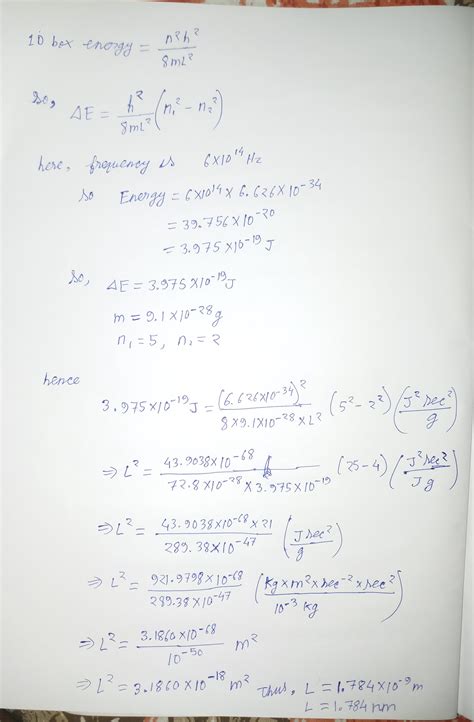 1D box energy = n²h² / 8mL²
So, ΔE = h²/8mL² (n₁² - n₂²)
here, frequency is 6×10¹⁴ Hz
so Energy = 6×10¹⁴ × 6.626×10⁻³⁴
= 39.756×10⁻²⁰
= 3.975×10⁻¹⁹ J
So, ΔE = 3.975×10⁻¹⁹ J
m = 9.1×10⁻²⁸ g
n₁ = 5, n₂ = 2
hence
3.975×10⁻¹⁹ J = (6.626×10⁻³⁴)² / 8×9.1×10⁻²⁸×L² (5² - 2²) (J² sec² / g)
⇒ L² = 43.9038×10⁻⁶⁸ / 72.8×10⁻²⁸ × 3.975×10⁻¹⁹ (25-4) (J² sec² / J g)
⇒ L² = 43.9038×10⁻⁶⁸ × 21 / 289.38×10⁻⁴⁷ (J sec² / g)
⇒ L² = 921.9798×10⁻⁶⁸ / 289.38×10⁻⁴⁷ (Kg×m²×sec⁻²×sec² / 10⁻³ Kg)
⇒ L² = 3.1860×10⁻⁶⁸ / 10⁻⁵⁰ m²
⇒ L² = 3.1860×10⁻¹⁸ m² Thus, L = 1.784×10⁻⁹ m
L = 1.784 nm